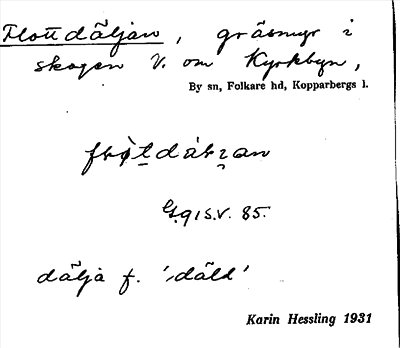 Flottdäljan, gräsmyr i
skogen V. om Kyrkbyn,
By sn, Folkare hd, Kopparbergs l.
däljä f. 'däld'
Karin Hessling 1931